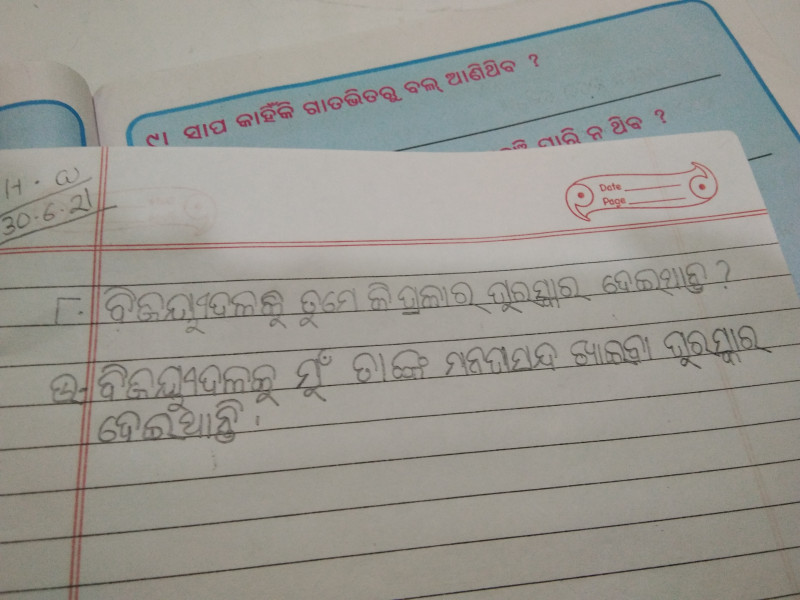 ୯। ସାପ କାହିଁକି ଗାତଭିତରୁ ବଲ୍ ଆଣିଥିବ ?
ପାରି ନ ଥିବ ?
H.W
30.6.21
Date
Page
୮. ବିଜୟୀଦଳକୁ ତୁମେ କି ପ୍ରକାର ପୁରସ୍କାର ଦେଇଥାନ୍ତ ?
ଉ- ବିଜୟୀଦଳକୁ ମୁଁ ତାଙ୍କ ମନପସନ୍ଦ ଖାଇବା ପୁରସ୍କାର
ଦେଇଥାନ୍ତି .